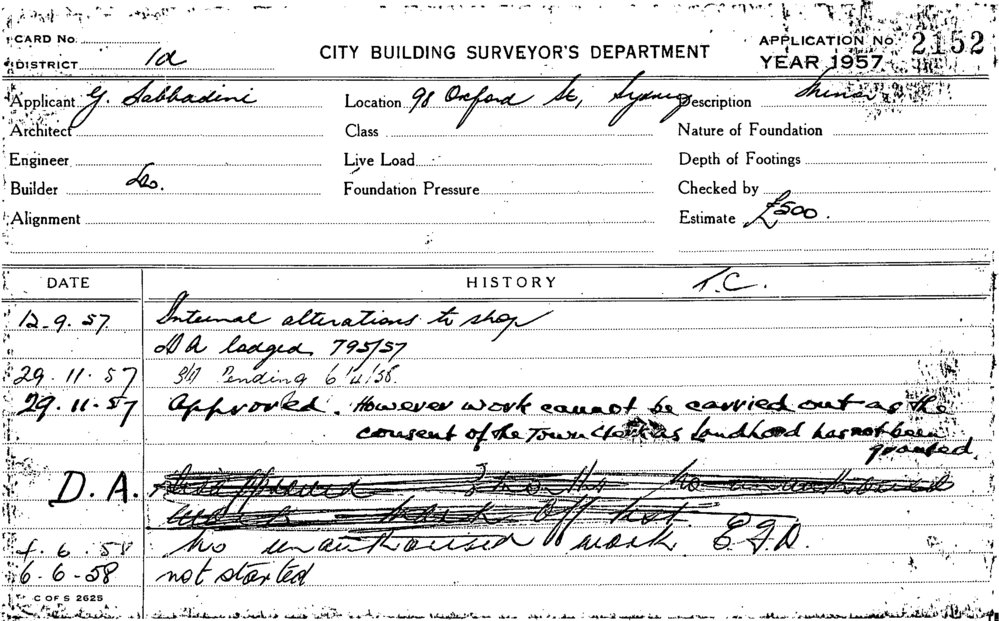 CARD No.
DISTRICT 1d
CITY BUILDING SURVEYOR'S DEPARTMENT
APPLICATION No. 2152
YEAR 1957
Applicant G. Sabbadini
Location 98 Oxford St, Sydney
Description
Architect
Class
Nature of Foundation
Engineer
Live Load
Depth of Footings
Builder Do.
Foundation Pressure
Checked by
Alignment
Estimate £500.
DATE HISTORY T.C.
12.9.57 Internal alterations to shop
DA lodged 795/57
29.11.57 Pending
29.11.57 Approved. However work cannot be carried out as the
consent of the Town Clerk as Landlord has not been
granted.
D.A.
work off list.
4.6.58 No unauthorised work E.J.D.
6.6.58 not started
C OF S 2625